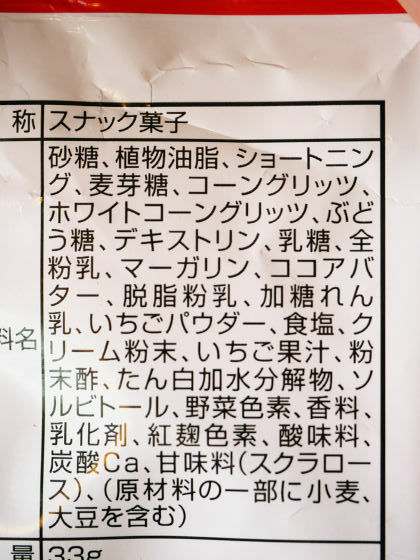 称 スナック菓子
砂糖、植物油脂、ショートニン
グ、麦芽糖、コーングリッツ、
ホワイトコーングリッツ、ぶど
う糖、デキストリン、乳糖、全
粉乳、マーガリン、ココアバ
ター、脱脂粉乳、加糖れん
乳、いちごパウダー、食塩、ク
料名 リーム粉末、いちご果汁、粉
末酢、たん白加水分解物、ソ
ルビトール、野菜色素、香料、
乳化剤、紅麹色素、酸味料、
炭酸Ca、甘味料(スクラロー
ス)、(原材料の一部に小麦、
大豆を含む)
量 33g